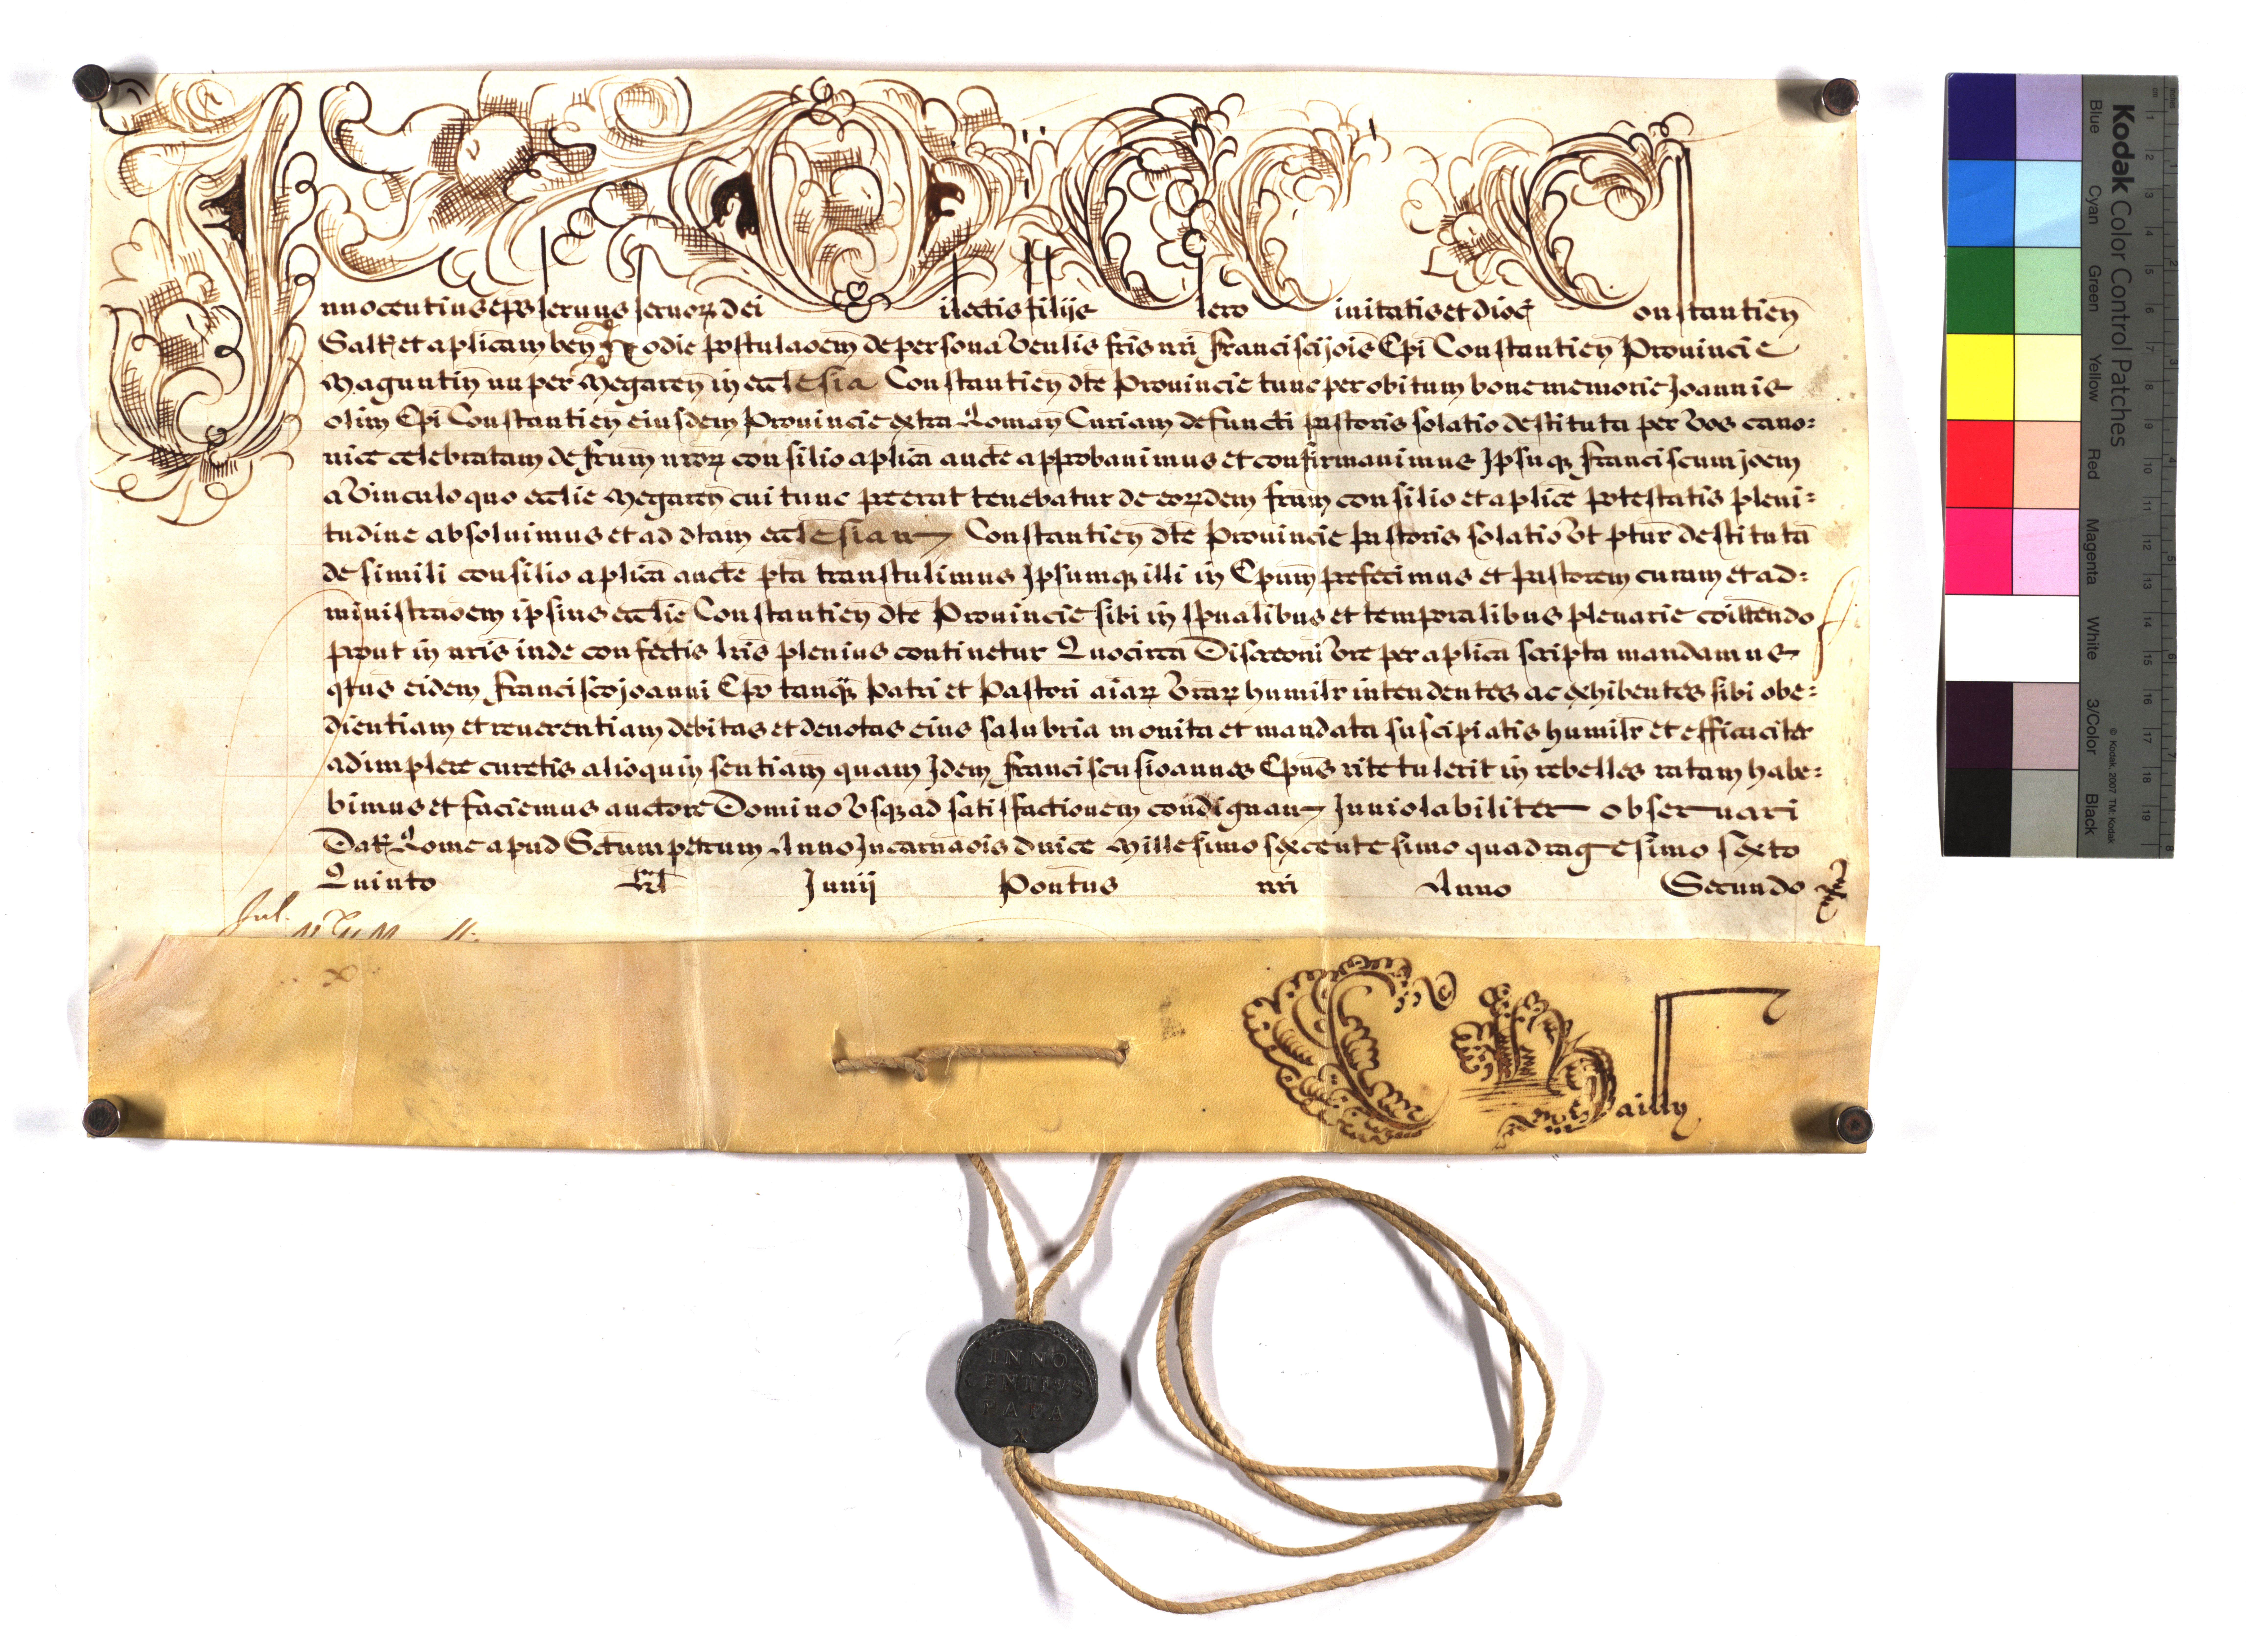 Innocentius eps seruus seruoꝝ dei Dilectis filijs Clero Ciuitatis et dioc̄ Constantien̄
Salt̄ et aplicam ben̄ Hodie postulaōem de persona Venlis fris nri Francisci jois Epi Constantien̄ Prouincie
Maguntin̄ nuper Megaren̄ in ecclesia Constantien̄ dte Prouincie tunc per obitum bone memorie Joannis
olim Epi Constantien̄ eiusdem Prouincie extra Roman̄ Curiam defuncti pastoris solatio destituta per Vos cano:
nice celebratam de frum̄ nroꝝ consilio aplica aucte approbauimus et confirmauimus Ipsuqꝫ Franciscum joem
a Vinculo quo ecclie Megaren̄ cui tunc preerat tenebatur de eoꝝdem frum̄ consilio et aplice potestatis pleni:
tudine absoluimus et ad dtam ecclesiam Constantien̄ dte Prouincie pastoris solatio Vt ptur destituta
de simili consilio aplica aucte pta transtulimus Ipsumqꝫ illi in Epum̄ prefecimus et Pastorem curam et ad:
ministraōem ipsius ecclie Constantien̄ dte Prouincie sibi in spualibus et temporalibus plenarie comittendo
prout in nris inde confectis lris plenius continetur Quocirca Discreoni Vre per aplica scripta mandamus
qtus eidem Francisco joanni Epo tanqꝫ Patri et Pastori aiaꝝ Vraꝝ humilr intendentes ac exhibentes sibi obe:
dientiam et reuerentiam debitas et deuotas eius salubria monita et mandata suscipiatis humilr et efficaciter
adimplere curetis alioquin sentiam quam Idem Franciscus ioannes Epus rite tulerit in rebelles ratam habe:
bimus et faciemus auctore Domino Vsqꝫ ad satisfactionem condignam Inuiolabiliter obseruari
Dat̄ Rome apud Sctumpetrum Anno Incarnaōis dnice Millesimo sexcentesimo quadragesimo sexto
Quinto Kl Junij Pontus nri Anno Secundo
Jul.
x
C Bailly
INNO
CENTIVS
PAPA
X
Kodak Color Control Patches
Blue Cyan Green Yellow Red Magenta White 3/Color Black
© Kodak, 2007 TM: Kodak
cm 1 2 3 4 5 6 7 8 9 10 11 12 13 14 15 16 17 18 19
inches 1 2 3 4 5 6 7 8